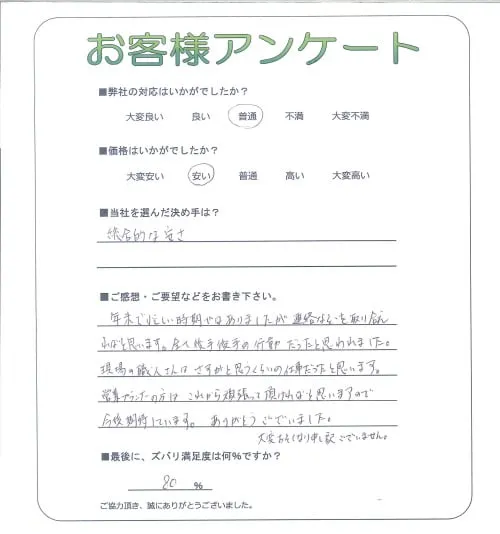 お客様アンケート
■弊社の対応はいかがでしたか？
大変良い 良い 普通 不満 大変不満
■価格はいかがでしたか？
大変安い 安い 普通 高い 大変高い
■当社を選んだ決め手は？
総合的な安さ
■ご感想・ご要望などをお書き下さい。
年末で忙しい時期ではありましたが 連絡などを取り合え
ればと思います。全て後手後手の行動だったと思われました。
現場の職人さんは さすがと思うくらいの仕事だったと思います。
営業プランナーの方は これから頑張って頂ければと思いますので
今後期待しています。 ありがとうございました。
大変おそくなり申し訳ございません。
■最後に、ズバリ満足度は何％ですか？
80 %
ご協力頂き、誠にありがとうございました。